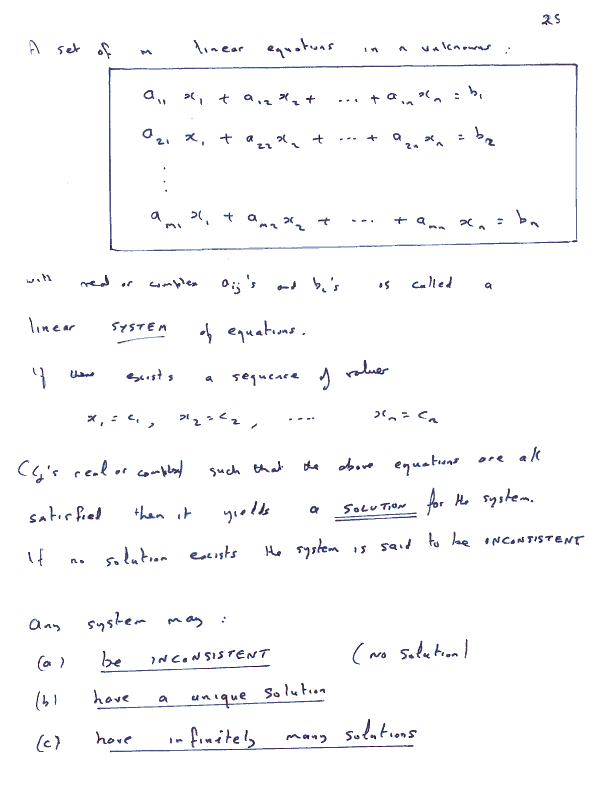 25
A set of m linear equations in n unknowns :
a₁₁ x₁ + a₁₂ x₂ + ... + a₁ₙ xₙ = b₁
a₂₁ x₁ + a₂₂ x₂ + ... + a₂ₙ xₙ = b₂
⋮
aₘ₁ x₁ + aₘ₂ x₂ + ... + aₘₙ xₙ = bₙ
with real or complex aᵢⱼ's and bᵢ's is called a
linear SYSTEM of equations.
If there exists a sequence of values
x₁ = c₁, x₂ = c₂, .... xₙ = cₙ
(cⱼ's real or complex) such that the above equations are all
satisfied then it yields a SOLUTION for the system.
If no solution exists the system is said to be INCONSISTENT
Any system may :
(a) be INCONSISTENT (no solution)
(b) have a unique solution
(c) have infinitely many solutions